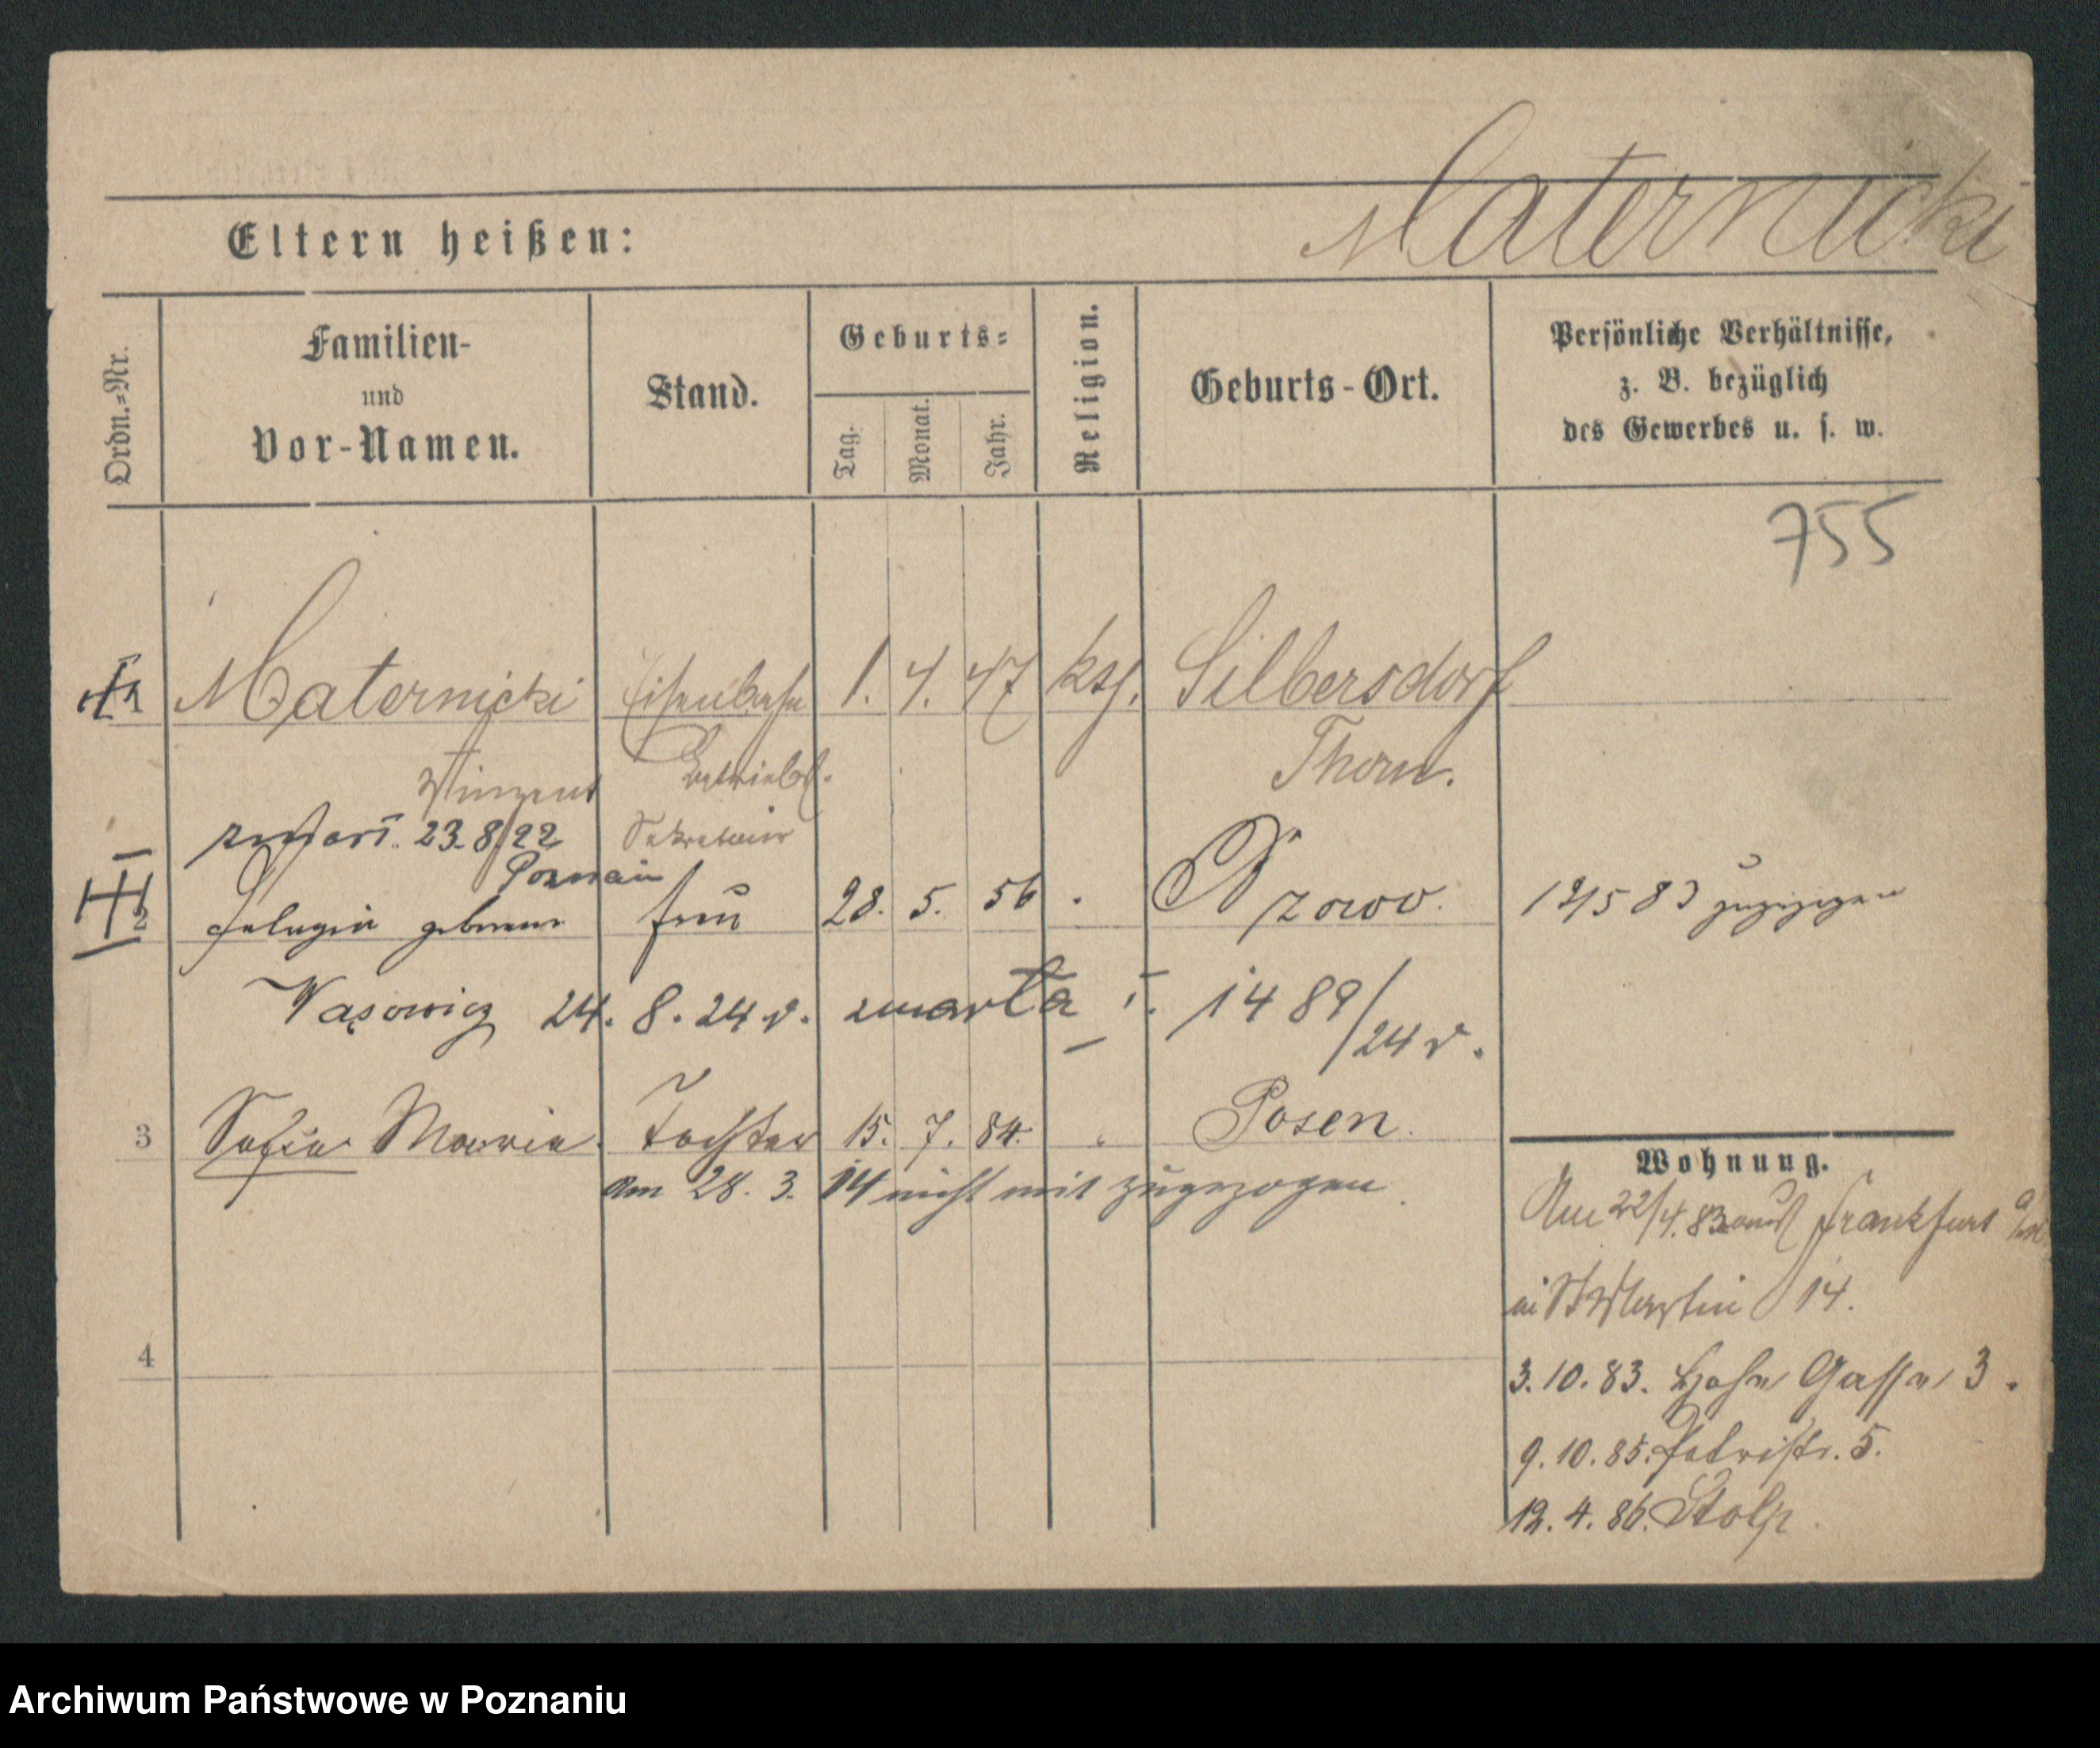 Maternicki
Eltern heißen:
Ordn.-Nr.
Familien-
und
Vor-Namen.
Stand.
Geburts-
Tag.
Monat.
Jahr.
Religion.
Geburts-Ort.
Persönliche Verhältnisse,
z. B. bezüglich
des Gewerbes u. s. w.
755
Maternicki Eisenbahn 1. 4. 47 kth. Silbersdorf
Vinzent Betriebs. Thorn.
23.8.22 Sekretair
Poznań
2 Pelagia geborene Frau 28. 5. 56 12/5 83 zugezogen
Wąsowicz 24. 8. 24 r. zmarła 1489/24 r.
3 Sofia Maria. Tochter 15. 7. 84. Posen.
Am 28. 3. 14 nicht mit zugezogen.
4
Wohnung.
Am 22/4.83 aus Frankfurt a/
St Martin 14.
3.10.83. Hohe Gasse 3.
9.10.85. Petristr. 5.
12.4.86. Stolp
Archiwum Państwowe w Poznaniu